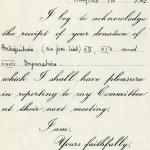 I beg to acknowledge
the receipt of your donation of
Antiquities (as per list) XI, XII and
XXVI Dynasties.
which I shall have pleasure
in reporting to my Committee
at their next meeting.
I am,
Yours faithfully,